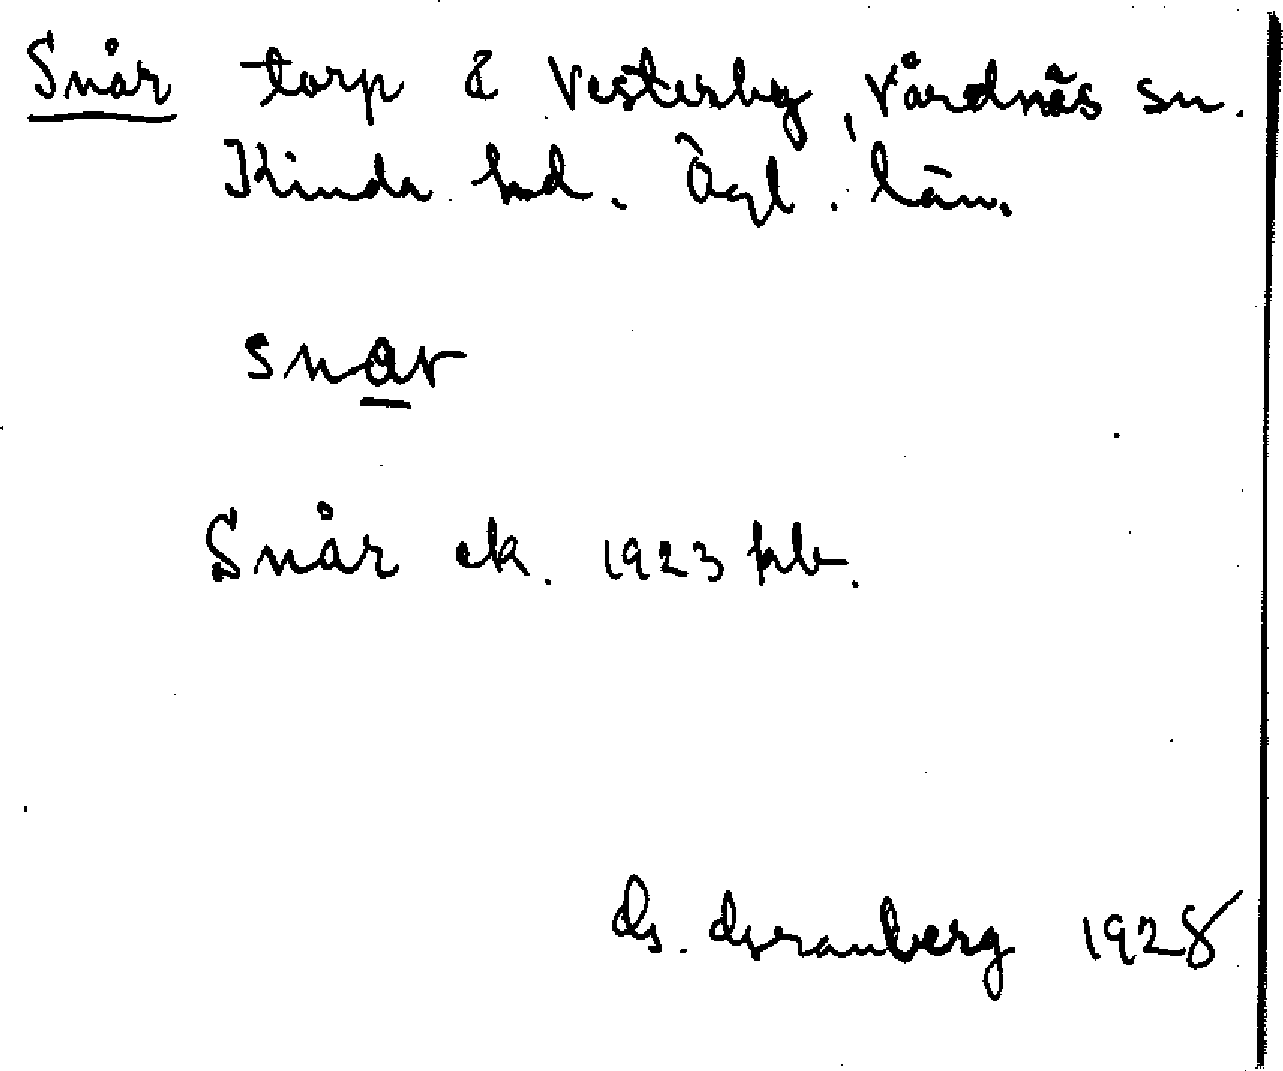 Snår torp å Vesterby, Vårdnäs sn.
Kinda hd. Ögl. län.
snar
Snår ek. 1923 kb.
G. Granberg 1928